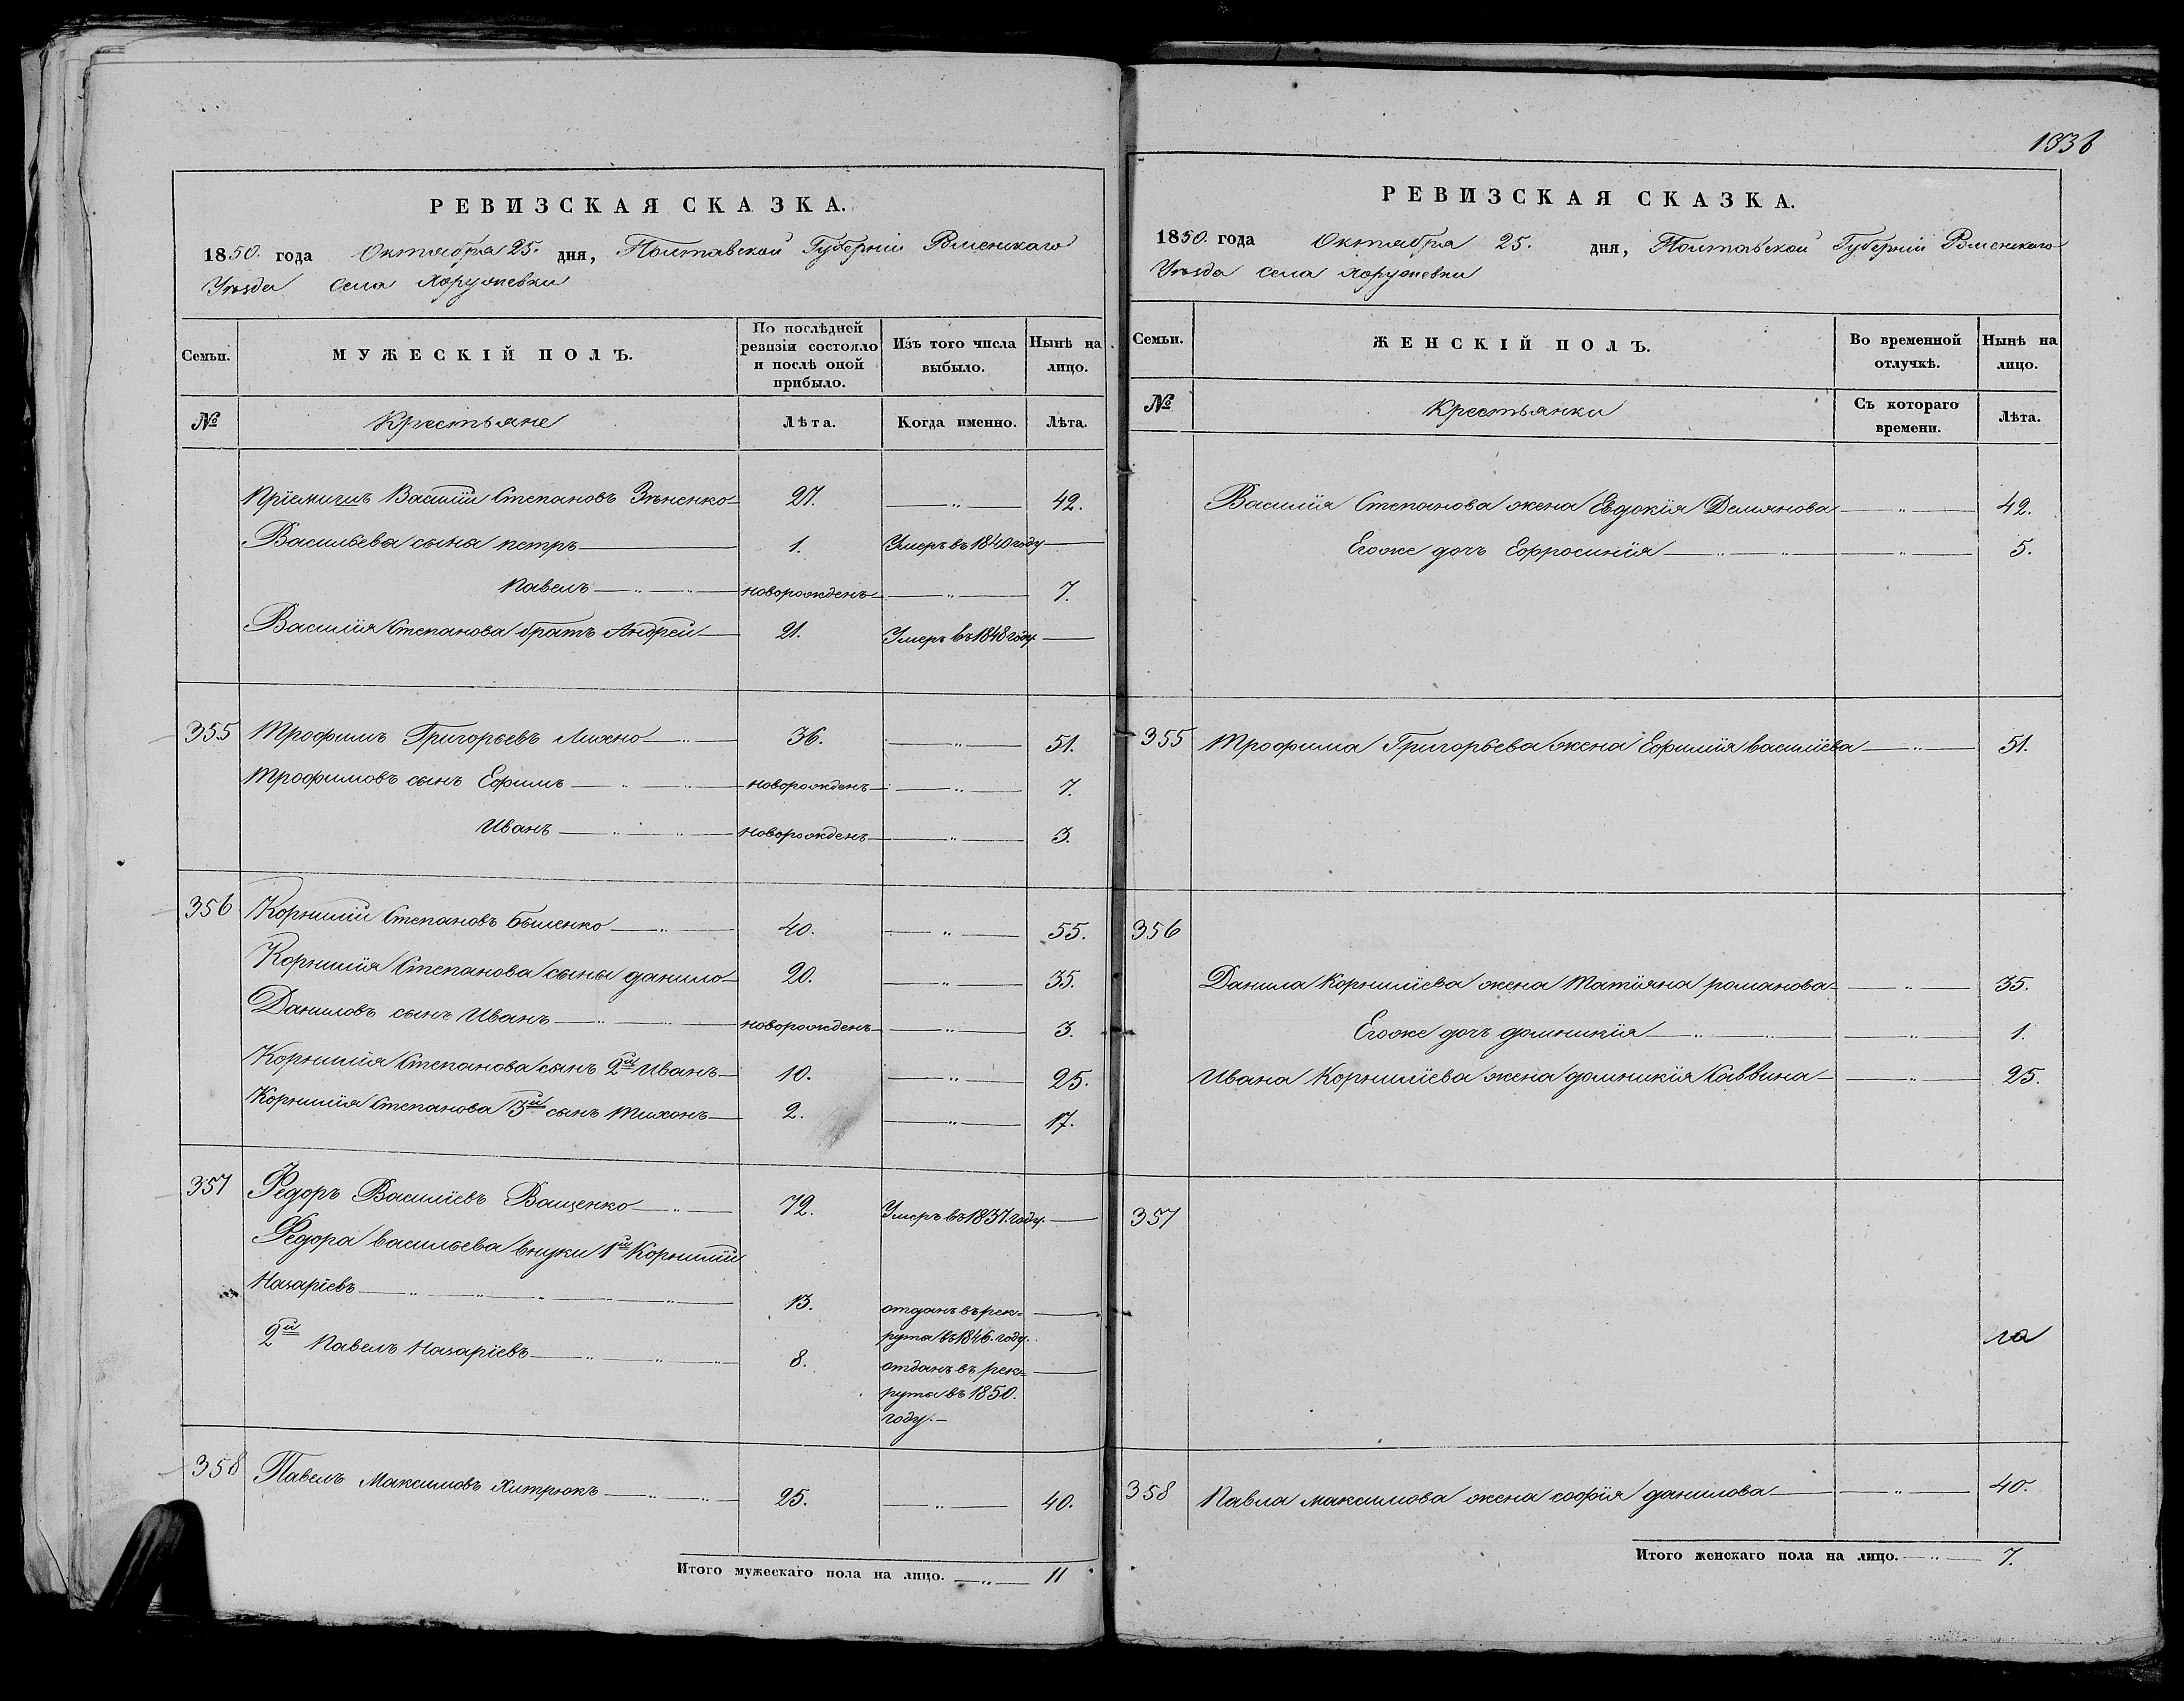 РЕВИЗСКАЯ СКАЗКА.
1850. года Октября 25. дня, Полтавской Губернии Роменскаго
Уѣзда села Хоружевки
Семьи.
МУЖЕСКІЙ ПОЛЪ.
По послѣдней ревизіи состояло и послѣ оной прибыло.
Изъ того числа выбыло.
Нынѣ на лицо.
№ Крестьяне Лѣта. Когда именно. Лѣта.
Пріемышъ Василій Степановъ 27. 42.
Васильева сына петръ 1. Умеръ въ 1840 году
Павелъ новорожденъ 7.
Василія Степанова братъ Андрей 21. Умеръ въ 1848 году.
355 Трофимъ Григорьевъ Лихно 36. 51.
Трофимовъ сынъ Ефимъ новорожденъ 7.
Иванъ новорожденъ 3.
356 Корнилій Степановъ 40. 55.
Корнилія Степанова сыны данило 20. 35.
Даниловъ сынъ Иванъ новорожденъ 3.
Корнилія Степанова сынъ 2й Иванъ 10. 25.
Корнилія Степанова 3й сынъ Тихонъ 2. 17.
357 Федоръ Василіевъ Ващенко 72. Умеръ въ 1837. году.
Федора васильева внуки 1й Корнилій
Назаріевъ 13. отданъ въ рек=
рута въ 1846. году.
2й Павелъ Назаріевъ 8. отданъ въ рек=
рута въ 1850.
году.
358 Павелъ Максимовъ Хитрюкъ 25. 40.
Итого мужескаго пола на лицо. 11
РЕВИЗСКАЯ СКАЗКА.
1850. года Октября 25. дня, Полтавской Губерніи Роменскаго
Уѣзда села Хоружевки
Семьи.
ЖЕНСКІЙ ПОЛЪ.
Во временной отлучкѣ.
Нынѣ на лицо.
№ Крестьянки Съ котораго времени. Лѣта.
Василія Степанова жена Евдокія Демянова 42.
Егоже дочъ Ефросинія 5.
355 Трофима Григорьева жена Ефимія василіева 51.
356
Данила Корниліева жена Татіяна романова 35.
Егоже дочъ домникія 1.
Ивана Корниліева жена домникія Саввина 25.
357
358 Павла максимова жена софія данилова 40.
Итого женскаго пола на лицо. 7.